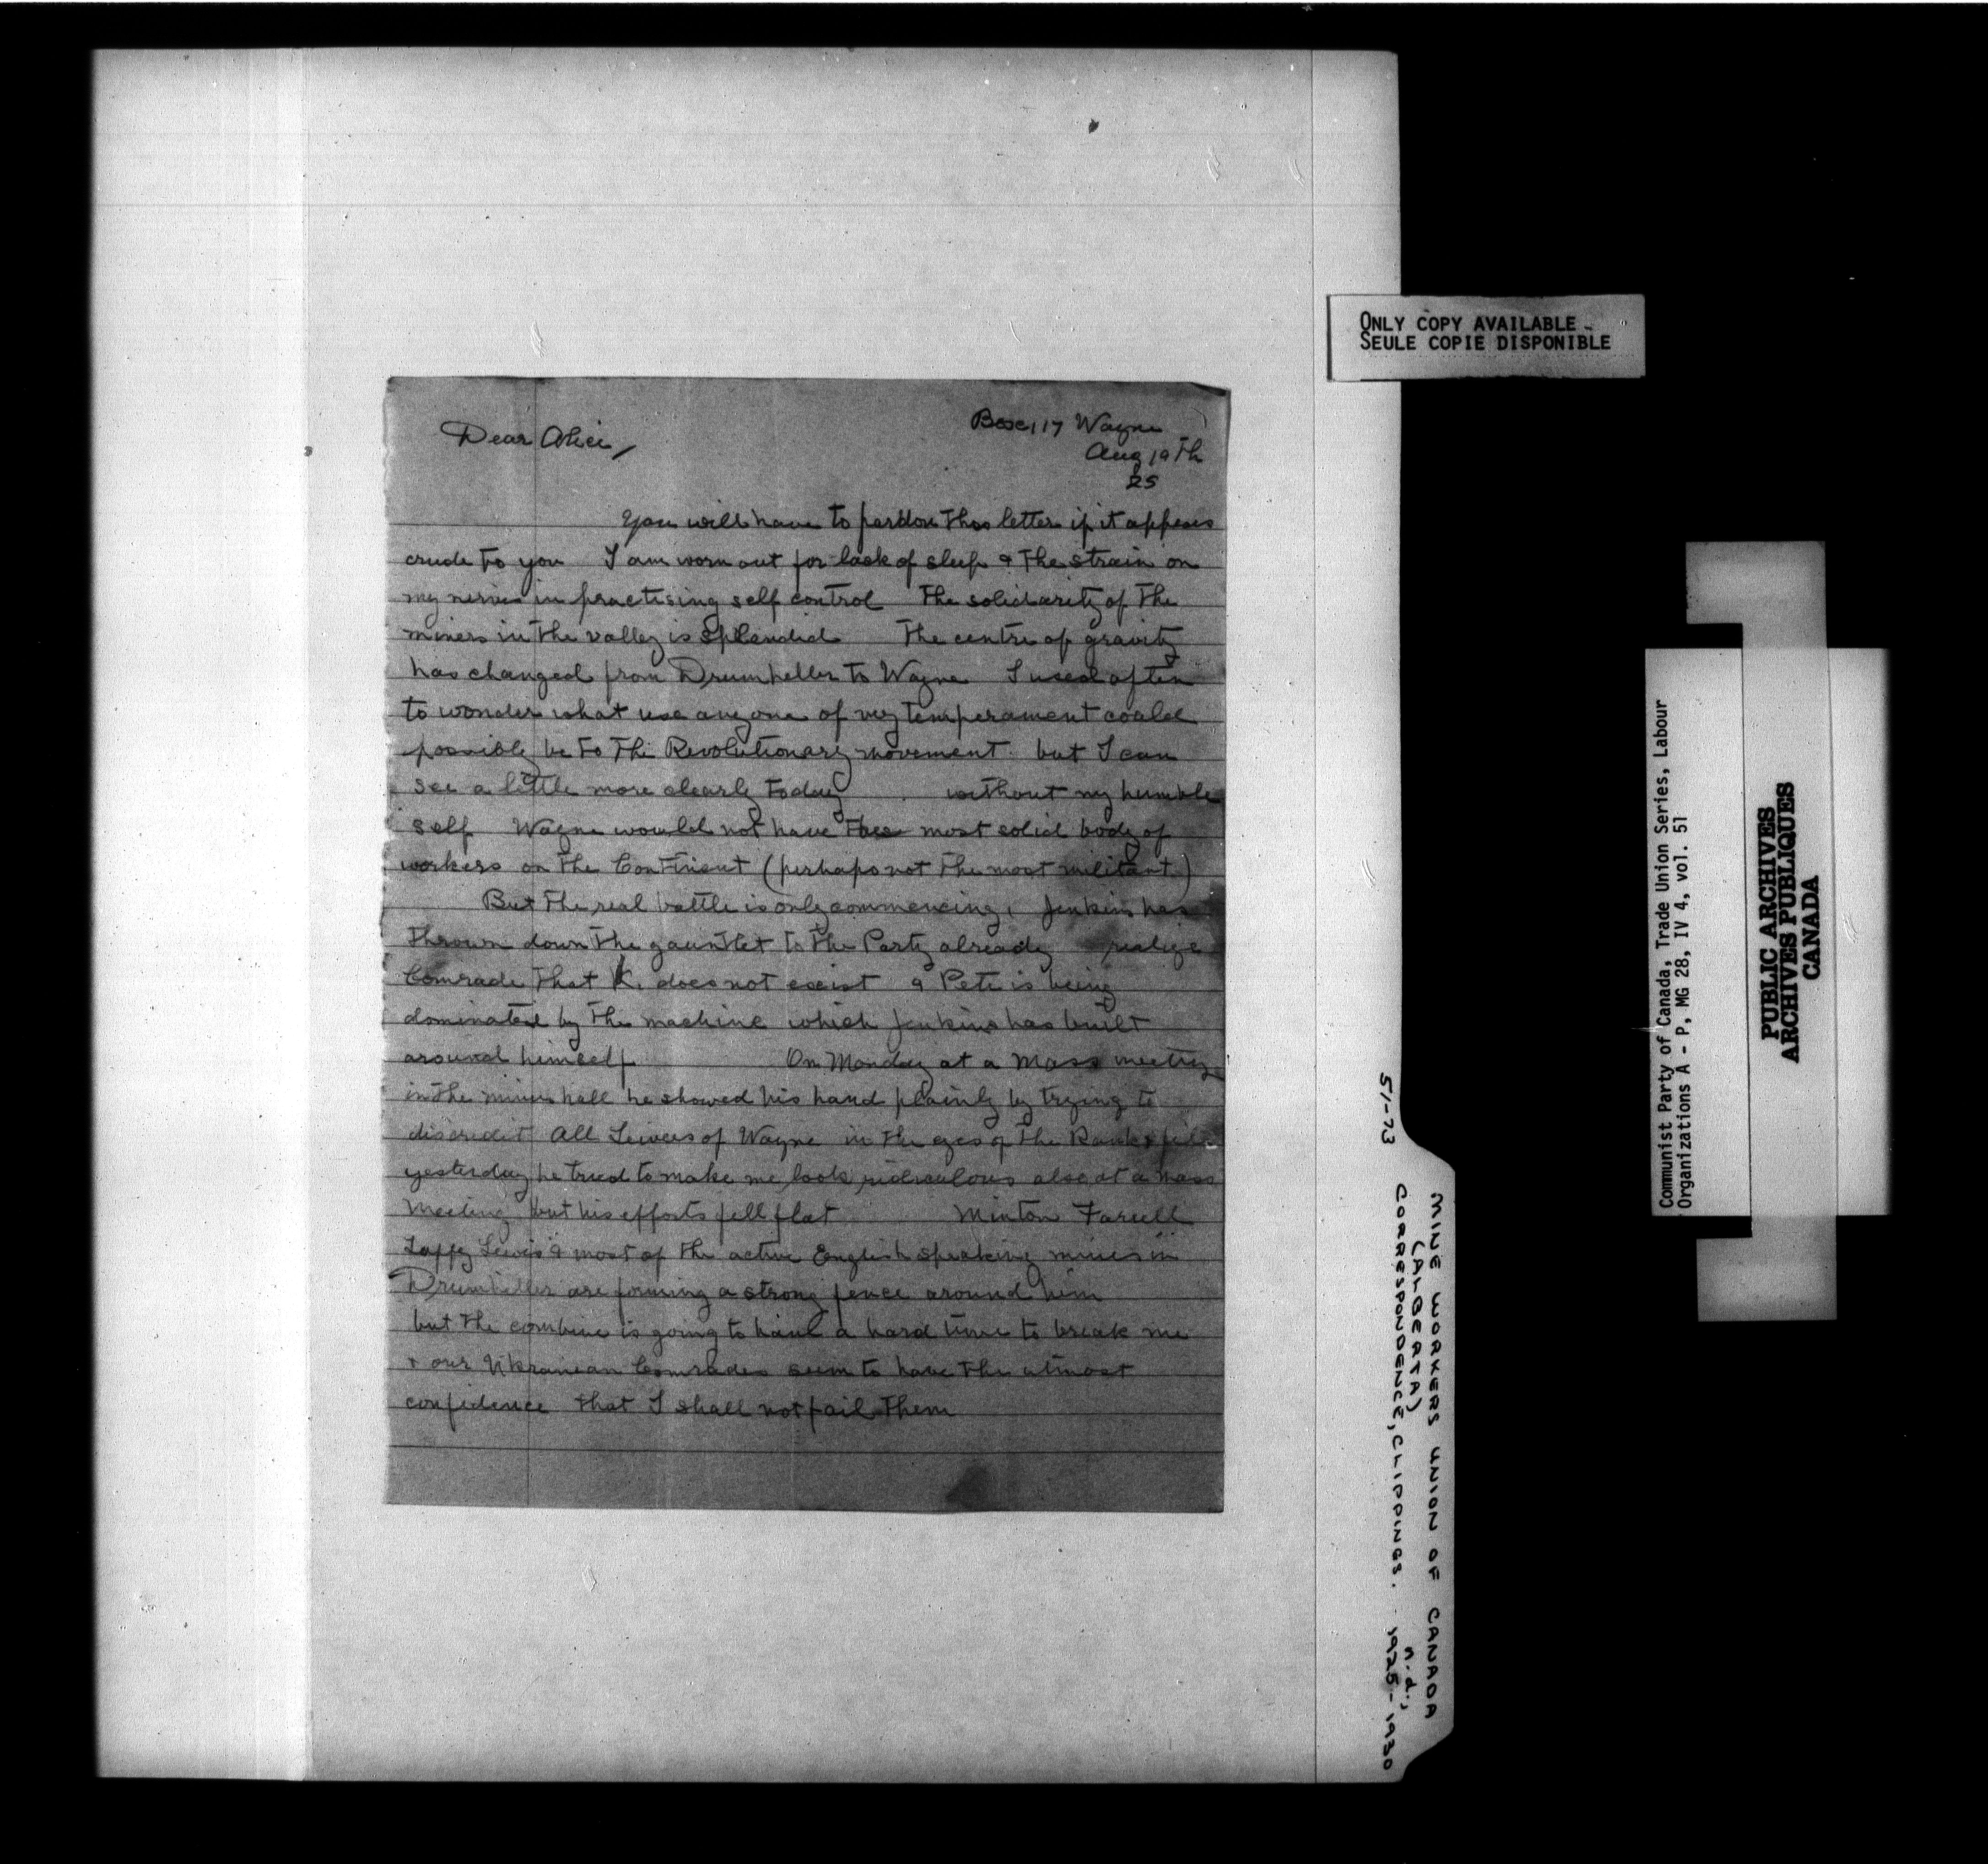 Box 117 Wayne
Aug 19th
25
Dear Alice,
You will have to pardon this letter if it appears
crude to you I am worn out for lack of sleep & the strain on
my nerves in practising self control The solidarity of the
miners in the valley is splendid The centre of gravity
has changed from Drumheller to Wayne I used often
to wonder what use anyone of my temperament could
possible be to the Revolutionary movement but I can
see a little more clearly today . without my humble
self Wayne would not have the most solid body of
workers on the Continent (perhaps not the most militant)
But the real battle is only commencing, Jenkins has
thrown down the gauntlet to the Party already realize
Comrade that K. does not exist & Pete is being
dominated by the machine which Jenkins has built
around himself On Monday at a Mass meeting
in the miners hall he showed his hand plainly by trying to
discredit All of Wayne in the eyes of the Rank & file
yesterday he tried to make me look ridiculous also at a mass
meeting but his efforts fell flat Minton Farrell
Taffy Lewis & most of the active English speaking miners in
Drumheller are forming a strong fence around him
but the combine is going to have a hard time to break me
& our Ukranian Comrades seem to have the utmost
confidence that I shall not fail them
ONLY COPY AVAILABLE
SEULE COPIE DISPONIBLE
51-73
MINE WORKERS UNION OF CANADA
(ALBERTA) n.d.,
CORRESPONDENCE, CLIPPINGS. 1925-1930
Communist Party of Canada, Trade Union Series, Labour
Organizations A - P, MG 28, IV 4, vol. 51
PUBLIC ARCHIVES
ARCHIVES PUBLIQUES
CANADA